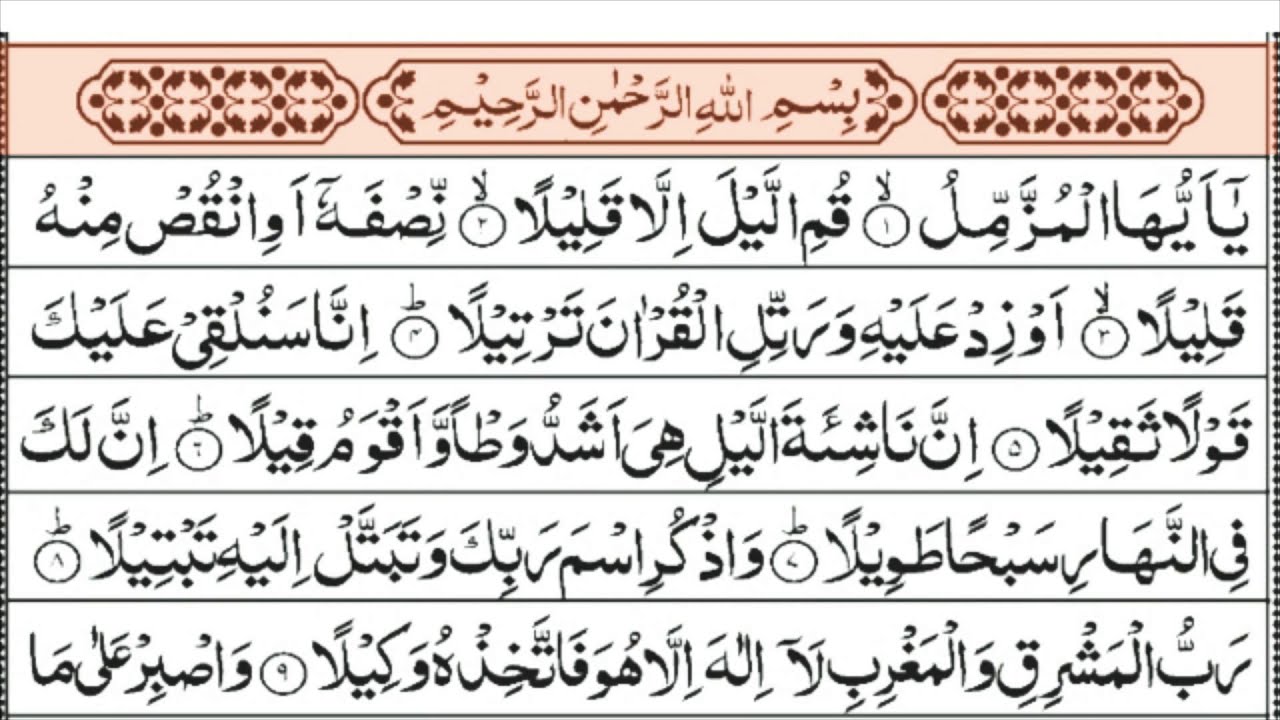 بِسْمِ اللهِ الرَّحْمٰنِ الرَّحِيْمِ
يٰۤاَيُّهَا الْمُزَّمِّلُ ۙ‏﴿۱﴾ قُمِ الَّيْلَ اِلَّا قَلِيْلًا ۙ‏﴿۲﴾ نِّصْفَهٗۤ اَوِ انْقُصْ مِنْهُ
قَلِيْلًا ۙ‏﴿۳﴾ اَوْ زِدْ عَلَيْهِ وَرَتِّلِ الْقُرْاٰنَ تَرْتِيْلًا ؕ‏﴿۴﴾ اِنَّا سَنُلْقِيْ عَلَيْكَ
قَوْلًا ثَقِيْلًا ﴿۵﴾ اِنَّ نَاشِئَةَ الَّيْلِ هِيَ اَشَدُّ وَطْاً وَّاَقْوَمُ قِيْلًا ؕ‏﴿۶﴾ اِنَّ لَكَ
فِي النَّهَارِ سَبْحًا طَوِيْلًا ؕ‏﴿۷﴾ وَاذْكُرِ اسْمَ رَبِّكَ وَتَبَتَّلْ اِلَيْهِ تَبْتِيْلًا ؕ‏﴿۸﴾
رَبُّ الْمَشْرِقِ وَالْمَغْرِبِ لَاۤ اِلٰهَ اِلَّا هُوَ فَاتَّخِذْهُ وَكِيْلًا ﴿۹﴾ وَاصْبِرْ عَلٰى مَا